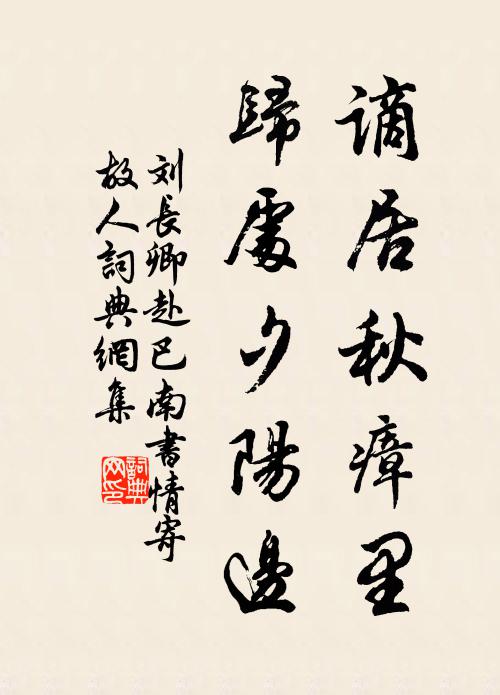 謫居秋瘴里
歸處夕陽邊
刘長卿赴巴南書情寄
故人詞典網集
詞典
网印